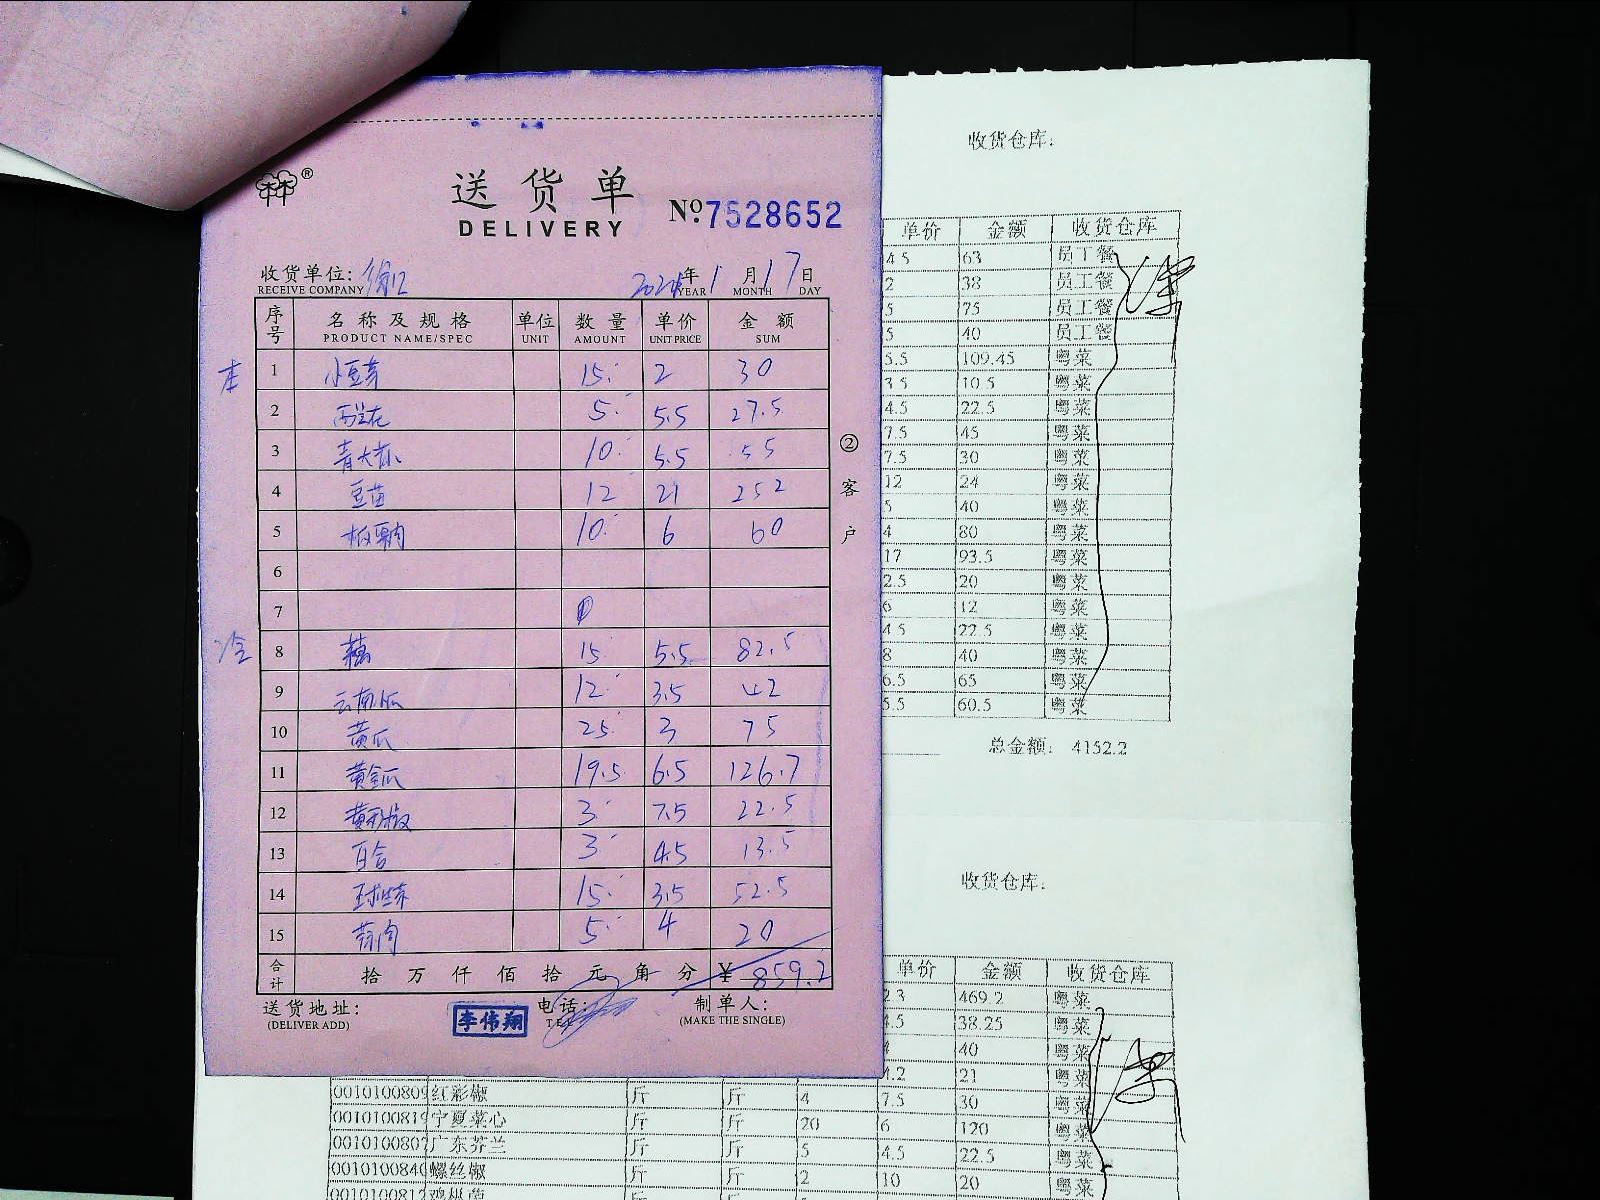 送货单
DELIVERY
№ 7528652
收货单位:
RECEIVE COMPANY
2024年 1月 17日
YEAR MONTH DAY
序号 名称及规格 单位 数量 单价 金额
PRODUCT NAME/SPEC UNIT AMOUNT UNIT PRICE SUM
本 1 小豆芽 15 2 30
2 西兰花 5 5.5 27.5
3 青大 10 5.5 55
4 豆苗 12 21 252
5 板栗肉 10 6 60
6
7
冷 8 藕 15 5.5 82.5
9 云南瓜 12 3.5 42
10 黄瓜 25 3 75
11 黄金瓜 19.5 6.5 126.7
12 黄彩椒 3 7.5 22.5
13 百合 3 4.5 13.5
14 15 3.5 52.5
15 蒜肉 5 4 20
合计 拾 万 仟 佰 拾 元 角 分 ¥ 859.2
送货地址: 电话: 制单人:
(DELIVER ADD) TEL (MAKE THE SINGLE)
李伟翔
②客户
收货仓库:
单价 金额 收货仓库
4.5 63 员工餐
2 38 员工餐
5 75 员工餐
5 40 员工餐
5.5 109.45 粤菜
3.5 10.5 粤菜
4.5 22.5 粤菜
7.5 45 粤菜
7.5 30 粤菜
12 24 粤菜
5 40 粤菜
4 80 粤菜
17 93.5 粤菜
2.5 20 粤菜
6 12 粤菜
4.5 22.5 粤菜
8 40 粤菜
6.5 65 粤菜
5.5 60.5 粤菜
总金额: 4152.2
收货仓库:
单价 金额 收货仓库
2.3 469.2 粤菜
4.5 38.25 粤菜
4 40 粤菜
4.2 21 粤菜
0010100809 红彩椒 斤 斤 4 7.5 30 粤菜
0010100819 宁夏菜心 斤 斤 20 6 120 粤菜
0010100807 广东芥兰 斤 斤 5 4.5 22.5 粤菜
0010100840 螺丝椒 斤 斤 2 10 20 粤菜
0010100817 鸡枞菌